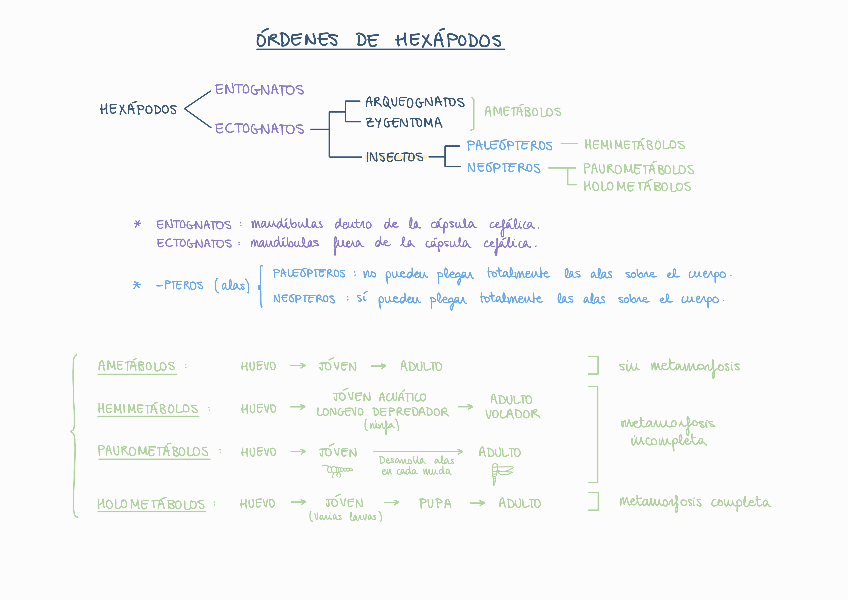 ÓRDENES DE HEXÁPODOS
HEXÁPODOS
ENTOGNATOS
ECTOGNATOS
ARQUEOGNATOS
ZYGENTOMA
AMETÁBOLOS
INSECTOS
PALEÓPTEROS — HEMIMETÁBOLOS
NEÓPTEROS
PAUROMETÁBOLOS
HOLOMETÁBOLOS
* ENTOGNATOS : mandíbulas dentro de la cápsula cefálica.
ECTOGNATOS : mandíbulas fuera de la cápsula cefálica.
* -PTEROS (alas)
PALEÓPTEROS : no pueden plegar totalmente las alas sobre el cuerpo.
NEÓPTEROS : sí pueden plegar totalmente las alas sobre el cuerpo.
AMETÁBOLOS : HUEVO → JÓVEN → ADULTO ] sin metamorfosis
HEMIMETÁBOLOS : HUEVO → JÓVEN ACUÁTICO
LONGEVO DEPREDADOR
(ninfa)
→ ADULTO
VOLADOR
metamorfosis
incompleta
PAUROMETÁBOLOS : HUEVO → JÓVEN → ADULTO
Desarrolla alas
en cada muda
HOLOMETÁBOLOS : HUEVO → JÓVEN → PUPA → ADULTO ] metamorfosis completa
(varias larvas)